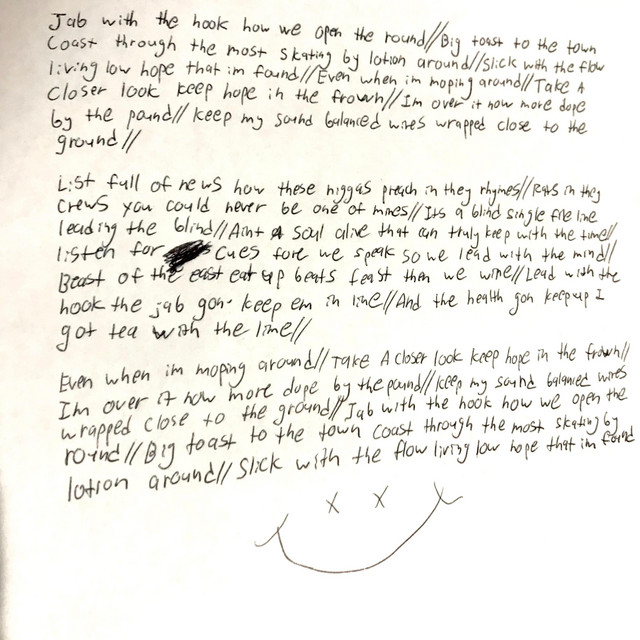 Jab with the hook how we open the round//Big toast to the town
Coast through the most skating by lotion around//Slick with the flow
living low hope that im found//Even when im moping around//Take A
Closer look keep hope in the frown//Im over it now more dope
by the pound//keep my sound balanced wires wrapped close to the
ground//
List full of news how these niggas preach in they rhymes//Rats in they
Crews you could never be one of mines//Its a blind single file line
leading the blind//Aint A soul alive that can truly keep with the time//
listen for cues fore we speak so we lead with the mind//
Beast of the east eat up beats feast then we wine//Lead with the
hook the jab gon keep em in line//And the health gon keep up I
got tea with the lime//
Even when im moping around//Take A closer look keep hope in the frown//
Im over it now more dope by the pound//keep my sound balanced wires
wrapped close to the ground//Jab with the hook how we open the
round//Big toast to the town Coast through the most skating by
lotion around//Slick with the flow living low hope that im found